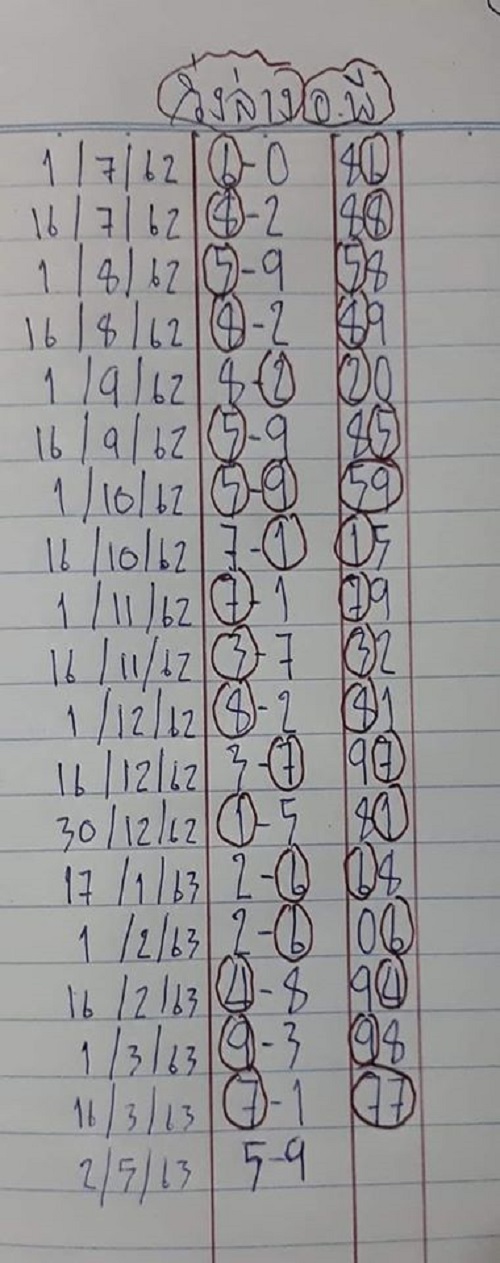 วิ่งล่าง อ.พี
1/7/62 6-0 86
16/7/62 8-2 88
1/8/62 5-9 58
16/8/62 8-2 89
1/9/62 8-2 20
16/9/62 5-9 85
1/10/62 5-9 59
16/10/62 7-1 15
1/11/62 7-1 79
16/11/62 3-7 32
1/12/62 8-2 81
16/12/62 3-7 97
30/12/62 1-5 81
17/1/63 2-6 68
1/2/63 2-6 06
16/2/63 4-8 94
1/3/63 9-3 98
16/3/63 7-1 77
2/5/63 5-9